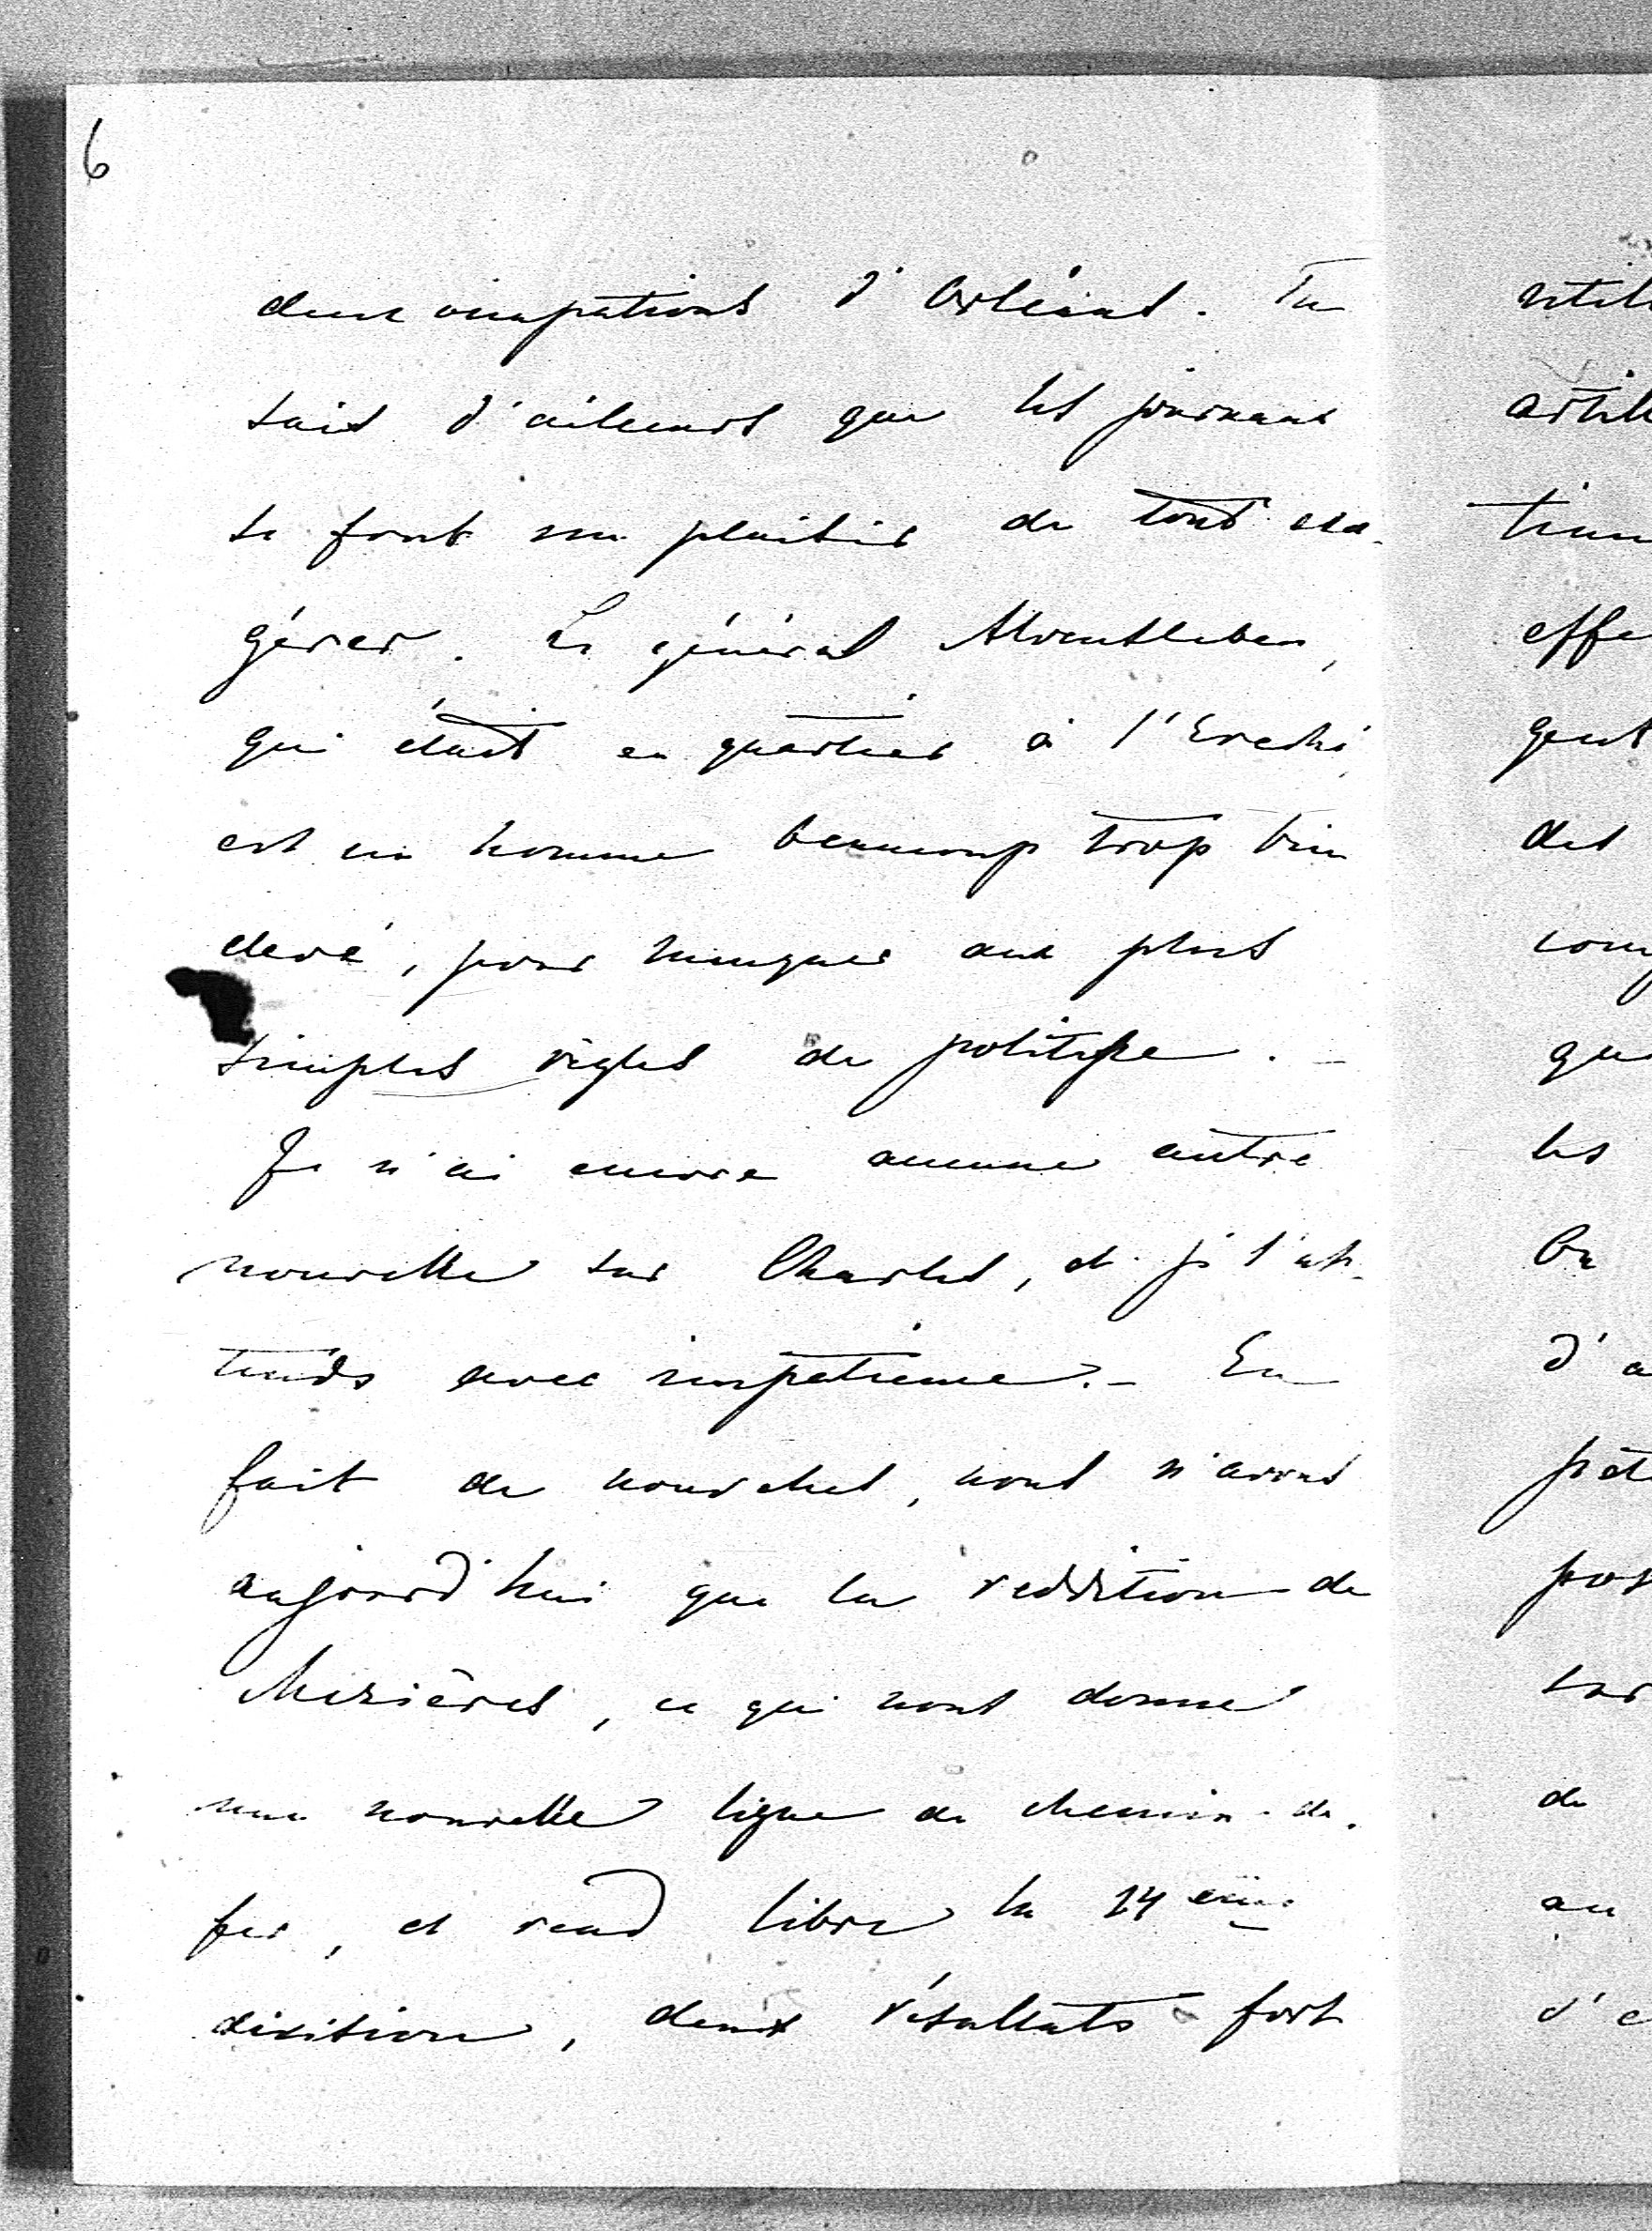 6
deux occupations d'Orléans. Tu
sais d'ailleurs que les journaux
se font un plaisir de tout exa-
gérer. Le général Alvensleben,
qui était en quartier à l'Evêché,
est un homme beaucoup trop bien
elevé, pour manquer aux plus
simples règles de politesse. -
Je n'ai encore aucune autre
nouvelle sur Charles, et je l'at-
tends avec impatience. - En
fait de nouvelles, nous n'avons
aujourd'hui que la reddition de
Mezières, ce qui nous donne
une nouvelle ligne de chemin-de-
fer, et rend libre la 14eme
division, deux résultats fort